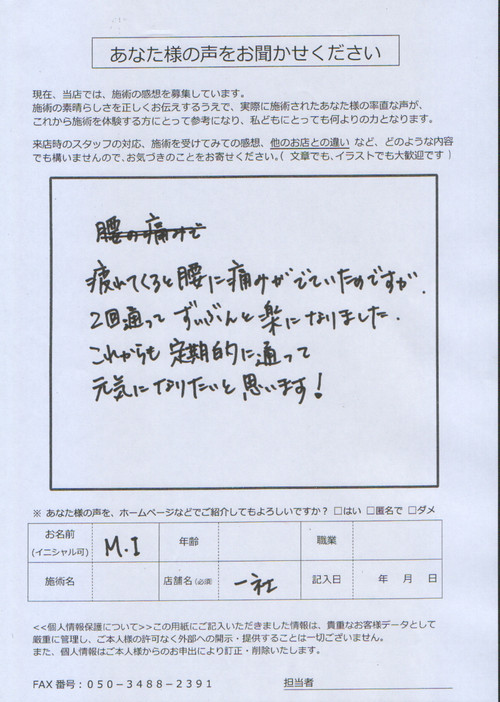 あなた様の声をお聞かせください
現在、当店では、施術の感想を募集しています。
施術の素晴らしさを正しくお伝えするうえで、実際に施術されたあなた様の率直な声が、
これから施術を体験する方にとって参考になり、私どもにとっても何よりの力となります。
来店時のスタッフの対応、施術を受けてみての感想、他のお店との違い など、どのような内容
でも構いませんので、お気づきのことをお寄せください。( 文章でも、イラストでも大歓迎です )
腰の痛みで
疲れてくると腰に痛みがでていたのですが、
2回通って ずいぶんと楽になりました.
これからも 定期的に通って
元気になりたいと思います!
※ あなた様の声を、ホームページなどでご紹介してもよろしいですか? □はい □匿名で □ダメ
お名前 (イニシャル可) M.I 年齢 職業
施術名 店舗名 (必須) 一社 記入日 年 月 日
<<個人情報保護について>>この用紙にご記入いただきました情報は、貴重なお客様データとして
厳重に管理し、ご本人様の許可なく外部への開示・提供することは一切ございません。
また、個人情報はご本人様からのお申出により訂正・削除いたします。
FAX 番号：050−3488−2391 担当者